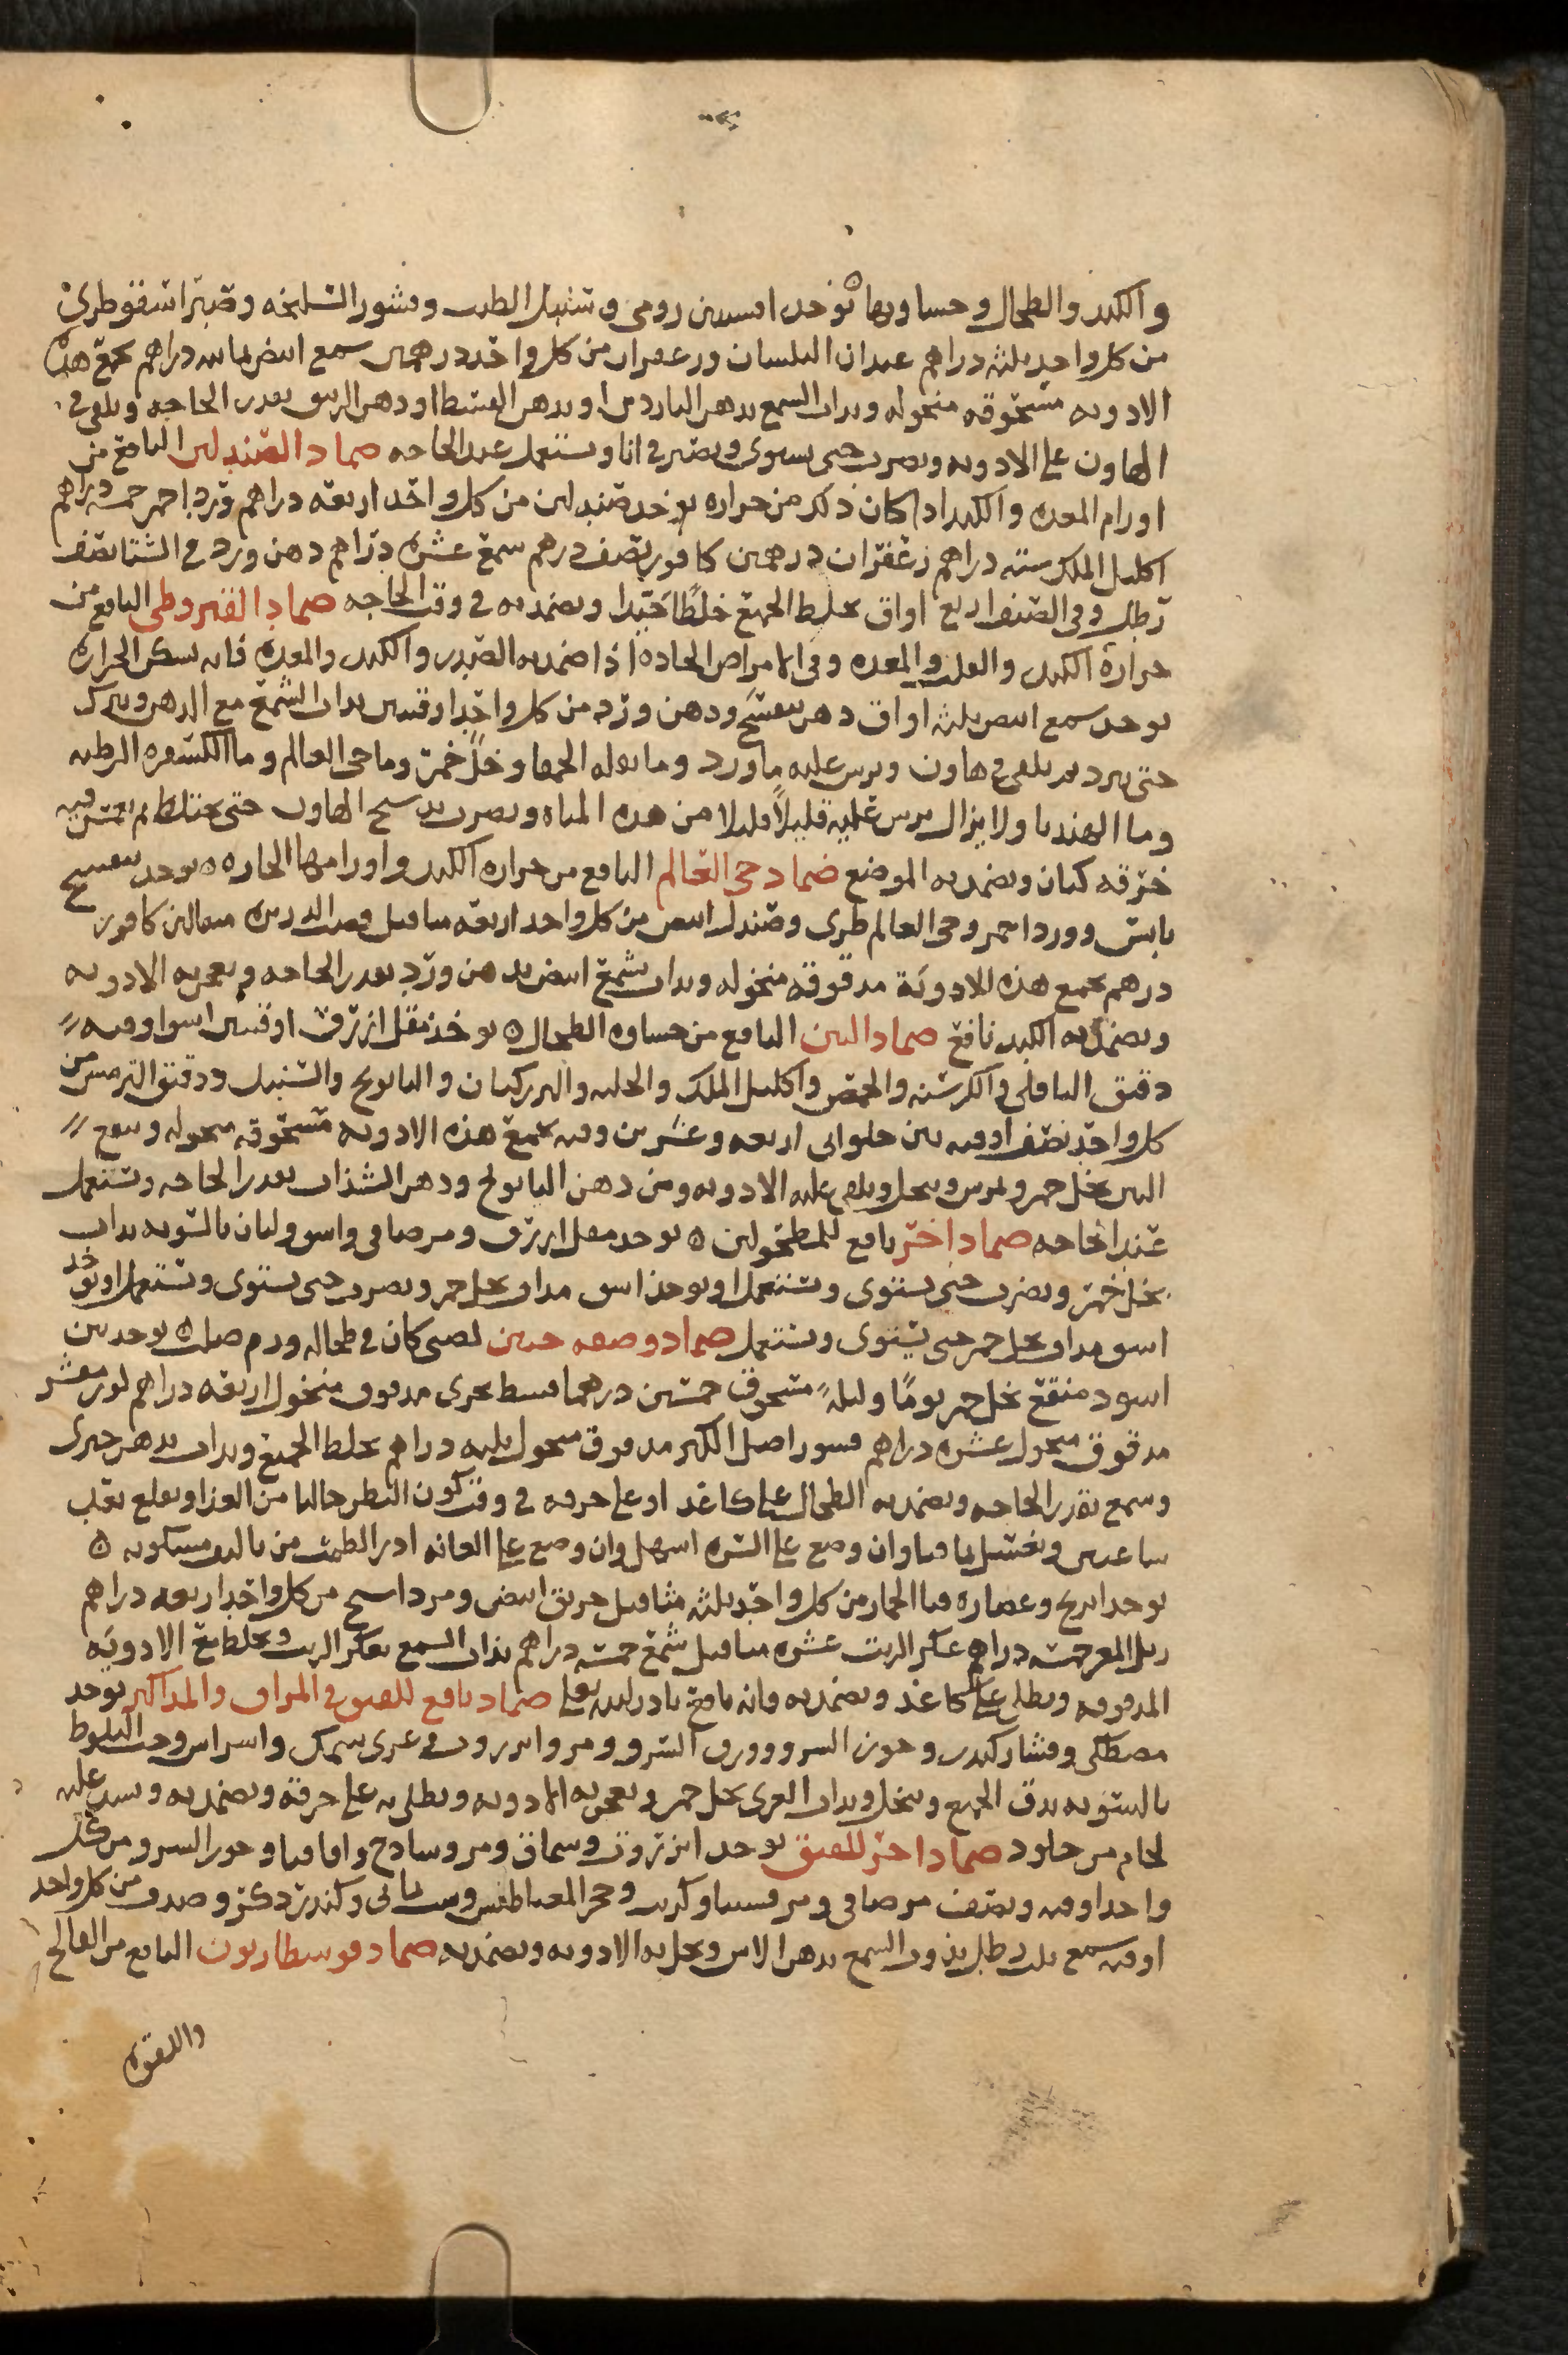 والكبد والطحال وجساوتها يؤخذ افسنتين رومي وسنبل الطيب وقشور السليخه وصبر اسقوطري
من كل واحد ثلثه دراهم عيدان البلسان وزعفران من كل واحد درهمين شمع ابيض ثمانيه دراهم تجمع هذه
الادويه مسحوقه منخوله ويذاب الشمع بدهن الناردين او بدهن المصطكا او دهن الزنبق بقدر الحاجه ويلقى في
الهاون على الادويه ويضرب حتى يستوي ويصير في انا ويستعمل عند الحاجه ضماد الصندلين النافع من
اورام المعده والكبد اذا كان ذلك من حراره يؤخذ صندلين من كل واحد اربعه دراهم ورد احمر خمسه دراهم
اكليل الملك سته دراهم زعفران درهمين كافور نصف درهم شمع عشره دراهم دهن ورد في الشتا نصف
رطل وفي الصيف اربع اواق يخلط الجميع خلطا جيدا ويضمد به في وقت الحاجه ضماد القيروطي النافع من
حراره الكبد والقلب والمعده وفي الامراض الحاده اذا ضمد به الصدر والكبد والمعده فانه يسكن الحراره
يوخذ شمع ابيض ثلثه اواق دهن بنفسج ودهن ورد من كل واحد اوقيتين يذاب الشمع مع الدهن ويترك
حتى يبرد ثم يلقى في هاون ويرش عليه ماورد وما بقله الحمقا وخل خمر وما حي العالم وما الكسفره الرطبه
وما الهندبا ولا يزال يرش عليه قليلا قليلا من هذه المياه ويضرب بدستج الهاون حتى يختلط ثم يغمس فيه
خرقه كتان ويضمد به الموضع ضماد حي العالم النافع من حراره الكبد واورامها الحاره يوخذ بنفسج
يابس وورد احمر وحي العالم طري وصندل ابيض من كل واحد اربعه مثاقيل قصب الدريره مثقالين كافور
درهم تجمع هذه الادويه مدقوقه منخوله ويذاب شمع ابيض بدهن ورد بقدر الحاجه ويعجن به الادويه
ويضمد به الكبد نافع ضماد التين النافع من جساوه الطحال يوخذ مقل ازرق اوقيتين اشق اوقيه
دقيق الباقلي والكرسنه والحمص واكليل الملك والحلبه والبزركتان والبابونج والسنبل ودقيق الترمس من
كل واحد نصف اوقيه تين حلواني اربعه وعشرين وقيه تجمع هذه الادويه مسحوقه منخوله وينقع
التين بخل خمر ويمرس وينخل ويلقى عليه الادويه ومن دهن البابونج ودهن السذاب بقدر الحاجه ويستعمل
عند الحاجه ضماد اخر نافع للمطحولين يوخذ مقل ازرق ومر صافي واشق ولبان بالسويه يذاب
بخل خمر ويضرب حتى يستوي ويستعمل او يوخذ اشق يذاب بخل خمر ويضرب حتى يستوي ويستعمل او يوخذ
اشق يذاب بخل خمر حتى يستوي ويستعمل ضماد وصفه حنين لصبي كان في طحاله ورم صلب يوخذ تين
اسود منقع بخل خمر يوما وليله مسحوق خمسين درهما قسط بحري مدقوق منخول اربعه دراهم لوز مقشر
مدقوق منخول عشره دراهم قشور اصل الكبر مدقوق منخول ثلثه دراهم يخلط الجميع ويذاب بدهن خيري
وشمع بقدر الحاجه ويضمد به الطحال على كاغد او على خرقه في وقت كون البطن خاليا من الغذا ويقلع بعد
ساعتين ويغسل
يوخذ وعصاره قثا الحمار من كل واحد ثلثه مثاقيل خربق ابيض ومرداسنج من كل واحد اربعه دراهم
خمسه دراهم عكر الزيت عشره مثاقيل شمع خمسه دراهم يذاب الشمع بعكر الزيت ويخلط مع الادويه
المدقوقه ويطلى على كاغد ويضمد به فانه نافع ضماد نافع للفتوق في المراق والمذاكير يوخذ
مصطكي وقشار كندر وجوز السرو وورق السرو ومر وانزروت وغري سمك واشراس وجفت البلوط
بالسويه يدق الجميع وينخل ويذاب الغري بخل خمر ويعجن به الادويه ويطلى به على خرقه ويضمد به ويشد عليه
لجام من جلود ضماد اخر للفتق يوخذ انزروت وسماق ومر وساذج واقاقيا وجوز السرو من كل
واحد اوقيه ونصف مر صافي ومرقشيتا وكبريت وحجر المغناطيس وكندر ذكر وصدف من كل واحد
اوقيه شمع ثلث رطل يذوب الشمع بدهن الاس ويحل به الادويه ويضمد به ضماد النافع من الفالج
واللقوه